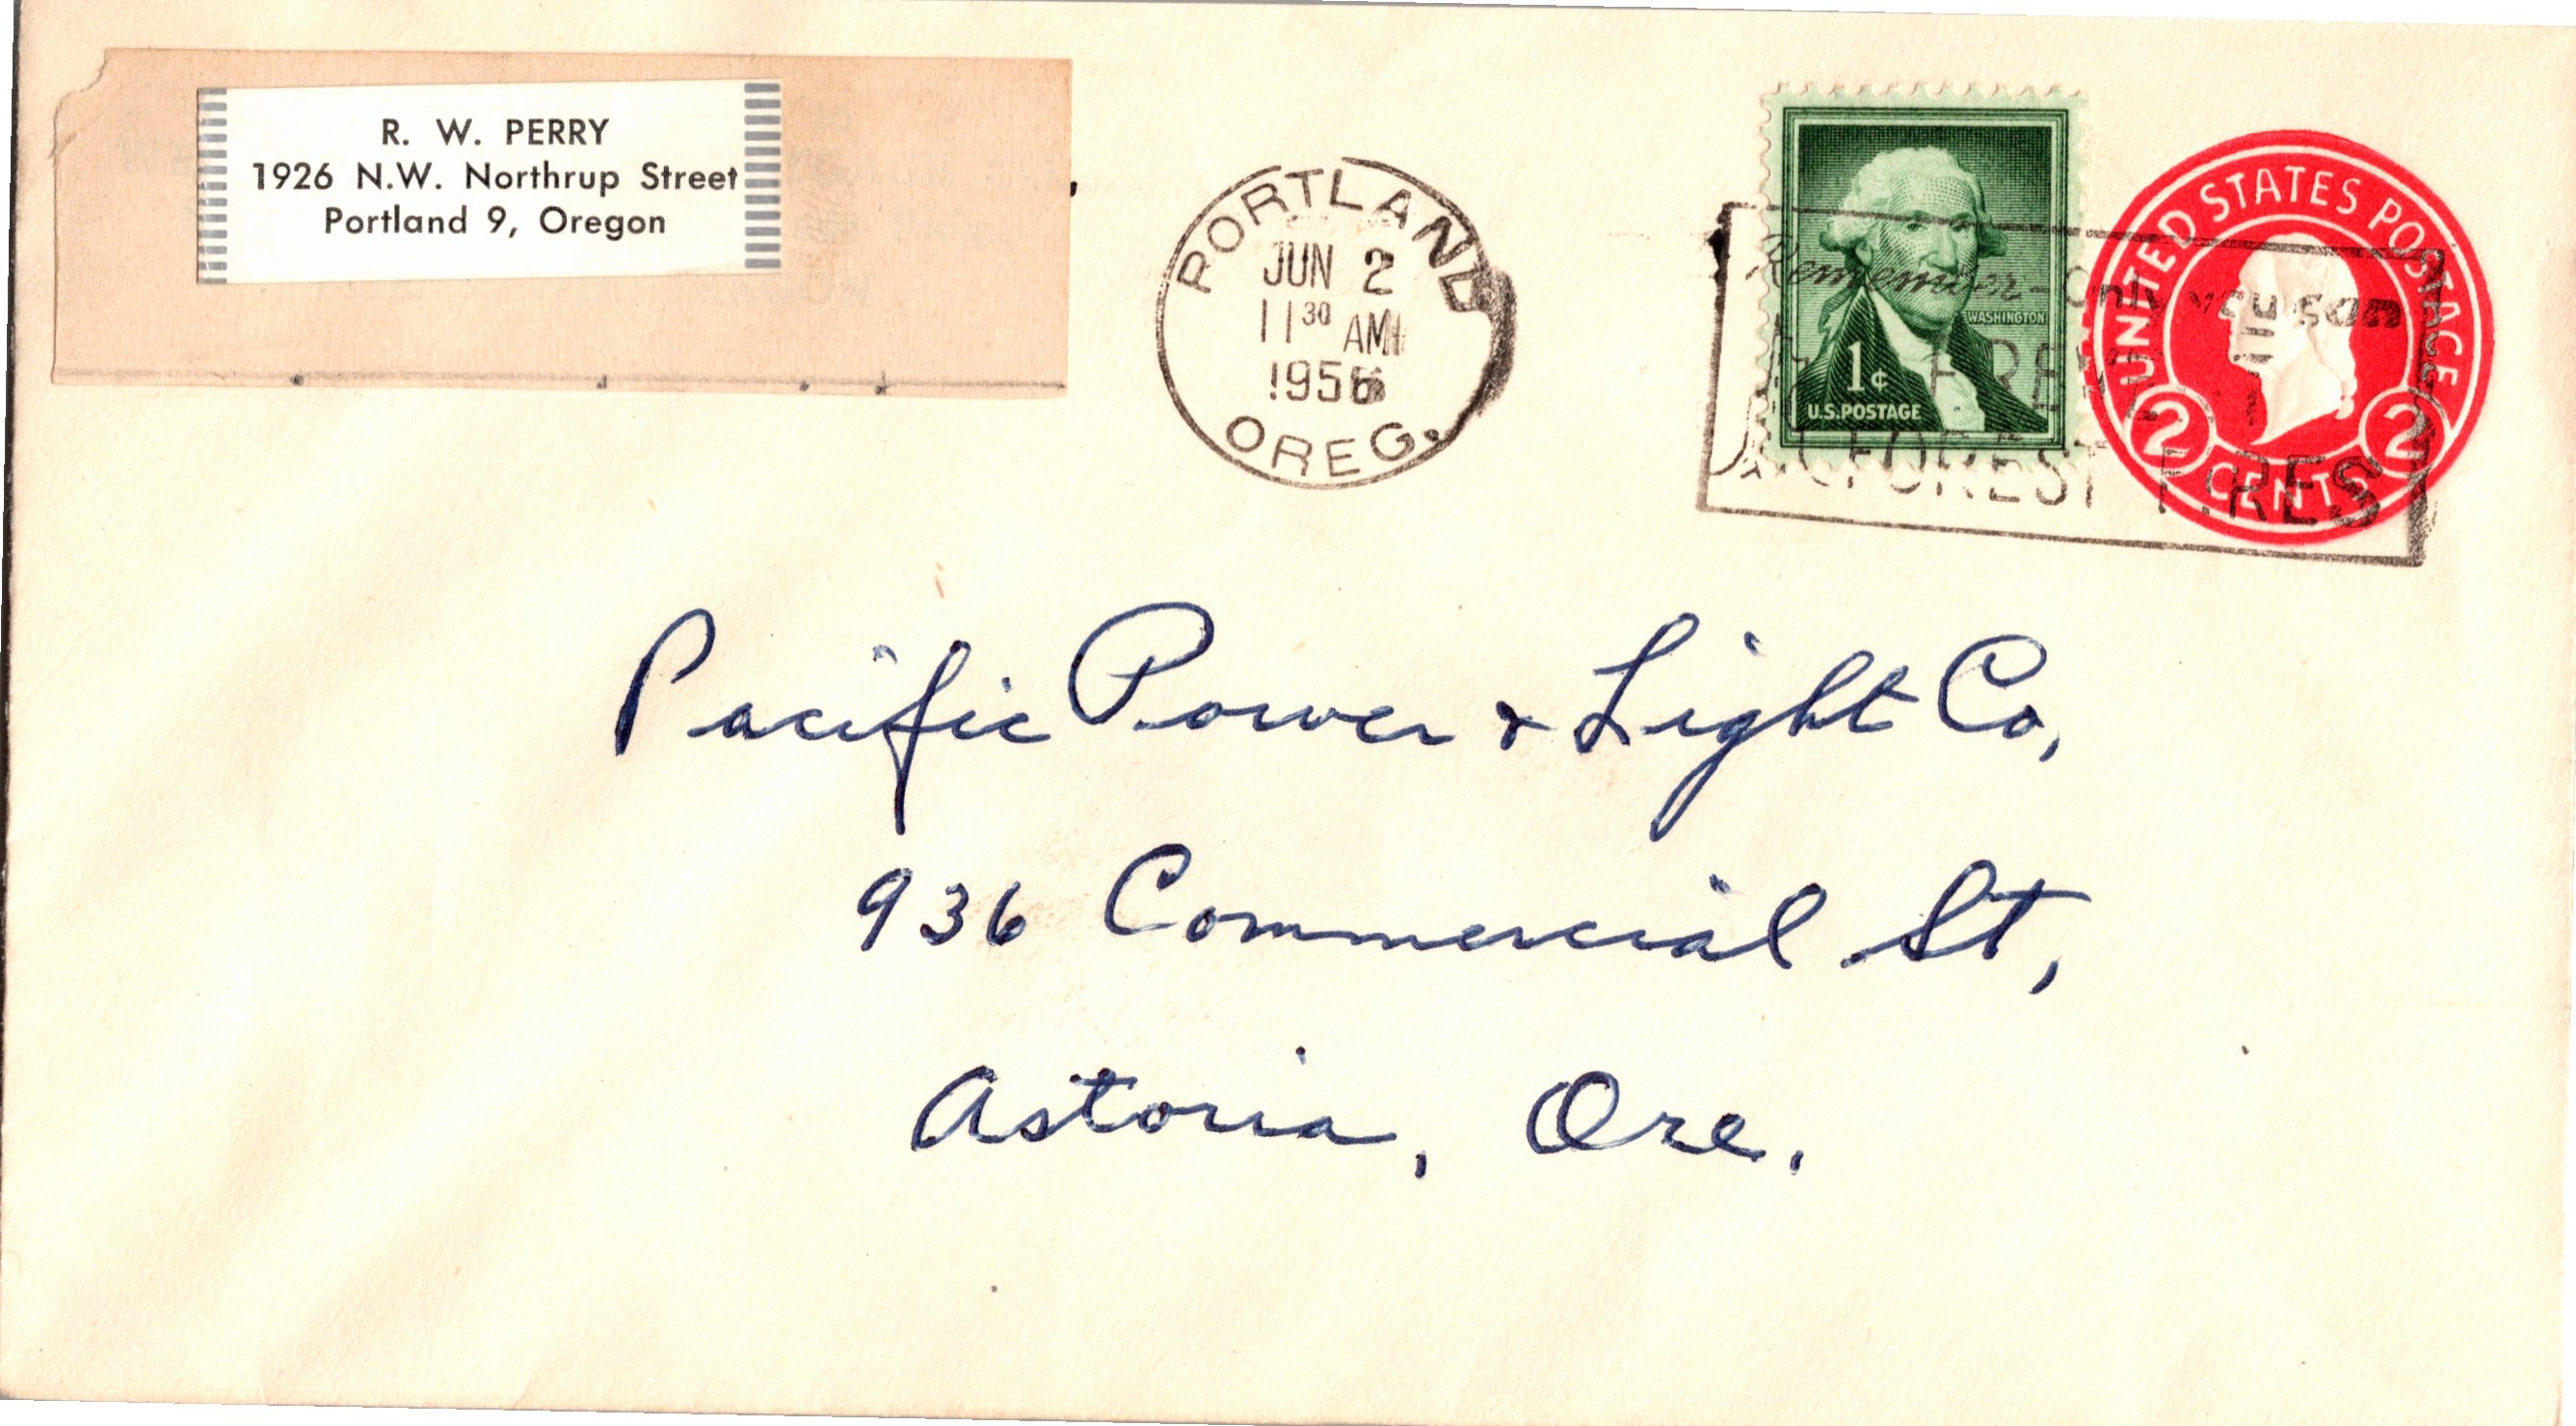 R. W. PERRY
1926 N.W. Northrup Street
Portland 9, Oregon
PORTLAND
JUN 2
11 30 AM
1956
OREG.
WASHINGTON
1¢
U.S. POSTAGE
UNITED STATES POSTAGE
2 CENTS 2
Remember - Only you can
FOREST FIRES
Pacific Power & Light Co,
936 Commercial St,
Astoria, Ore.